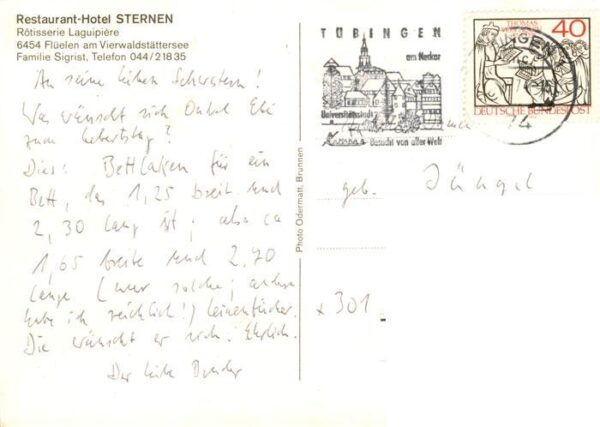 Restaurant-Hotel STERNEN
Rôtisserie Laguipière
6454 Flüelen am Vierwaldstättersee
Familie Sigrist, Telefon 044/21835
An seine lieben Schwestern!
Was wünscht sich Onkel
zum Geburtstag?
Dies: Bettlaken für ein
Bett, das 1,25 breit und
2,30 lang ist; also ca
1,65 breite und 2.70
lange (nur solche; andere
habe ich reichlich!) Leinentücher.
Die wünscht er sich. Ehrlich.
Der liebe Bruder
Photo Odermatt, Brunnen
TÜBINGEN
am Neckar
Universitätsstadt
Besucht von aller Welt
THOMAS
40
DEUTSCHE BUNDESPOST
74
geb. Jüngel
x 301